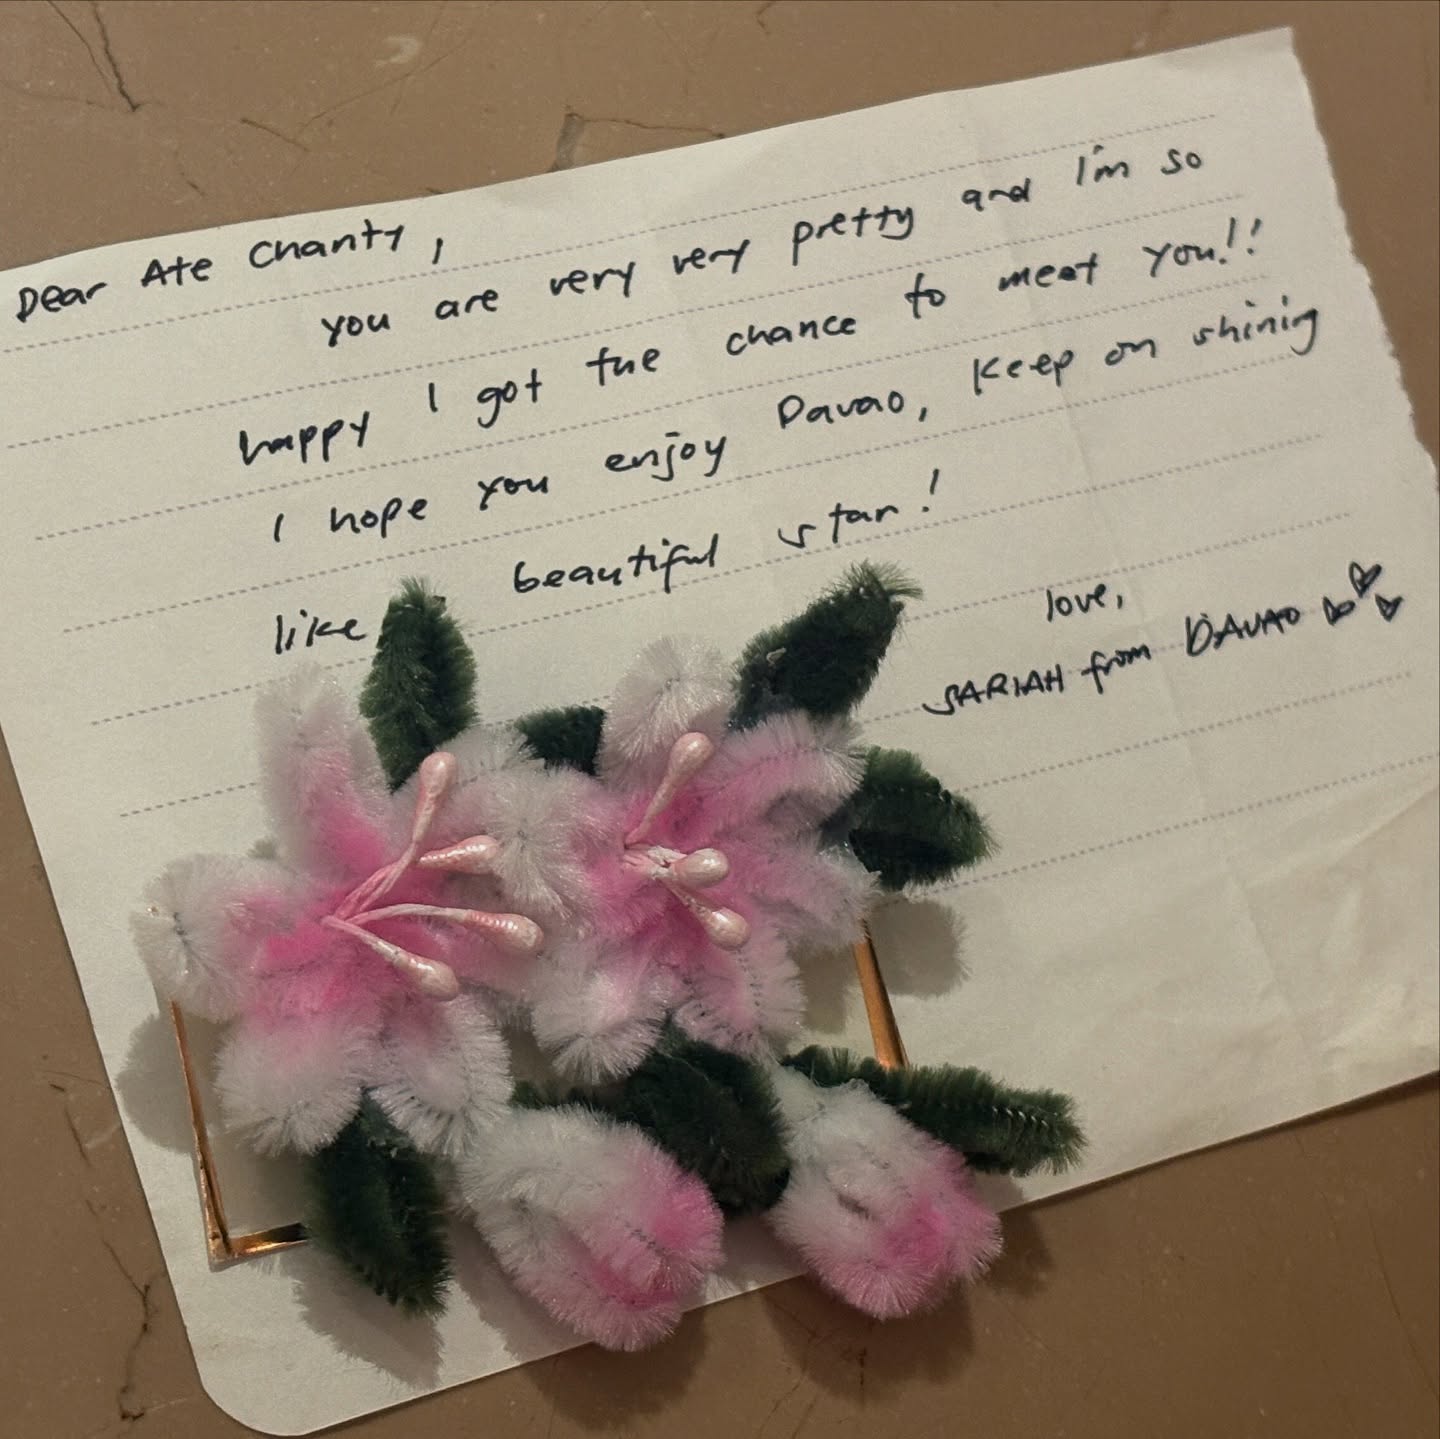 Dear Ate Chanty,
you are very very pretty and I'm so
happy I got the chance to meet you!!
I hope you enjoy Davao, Keep on shining
like beautiful star!
love,
SARIAH from DAVAO